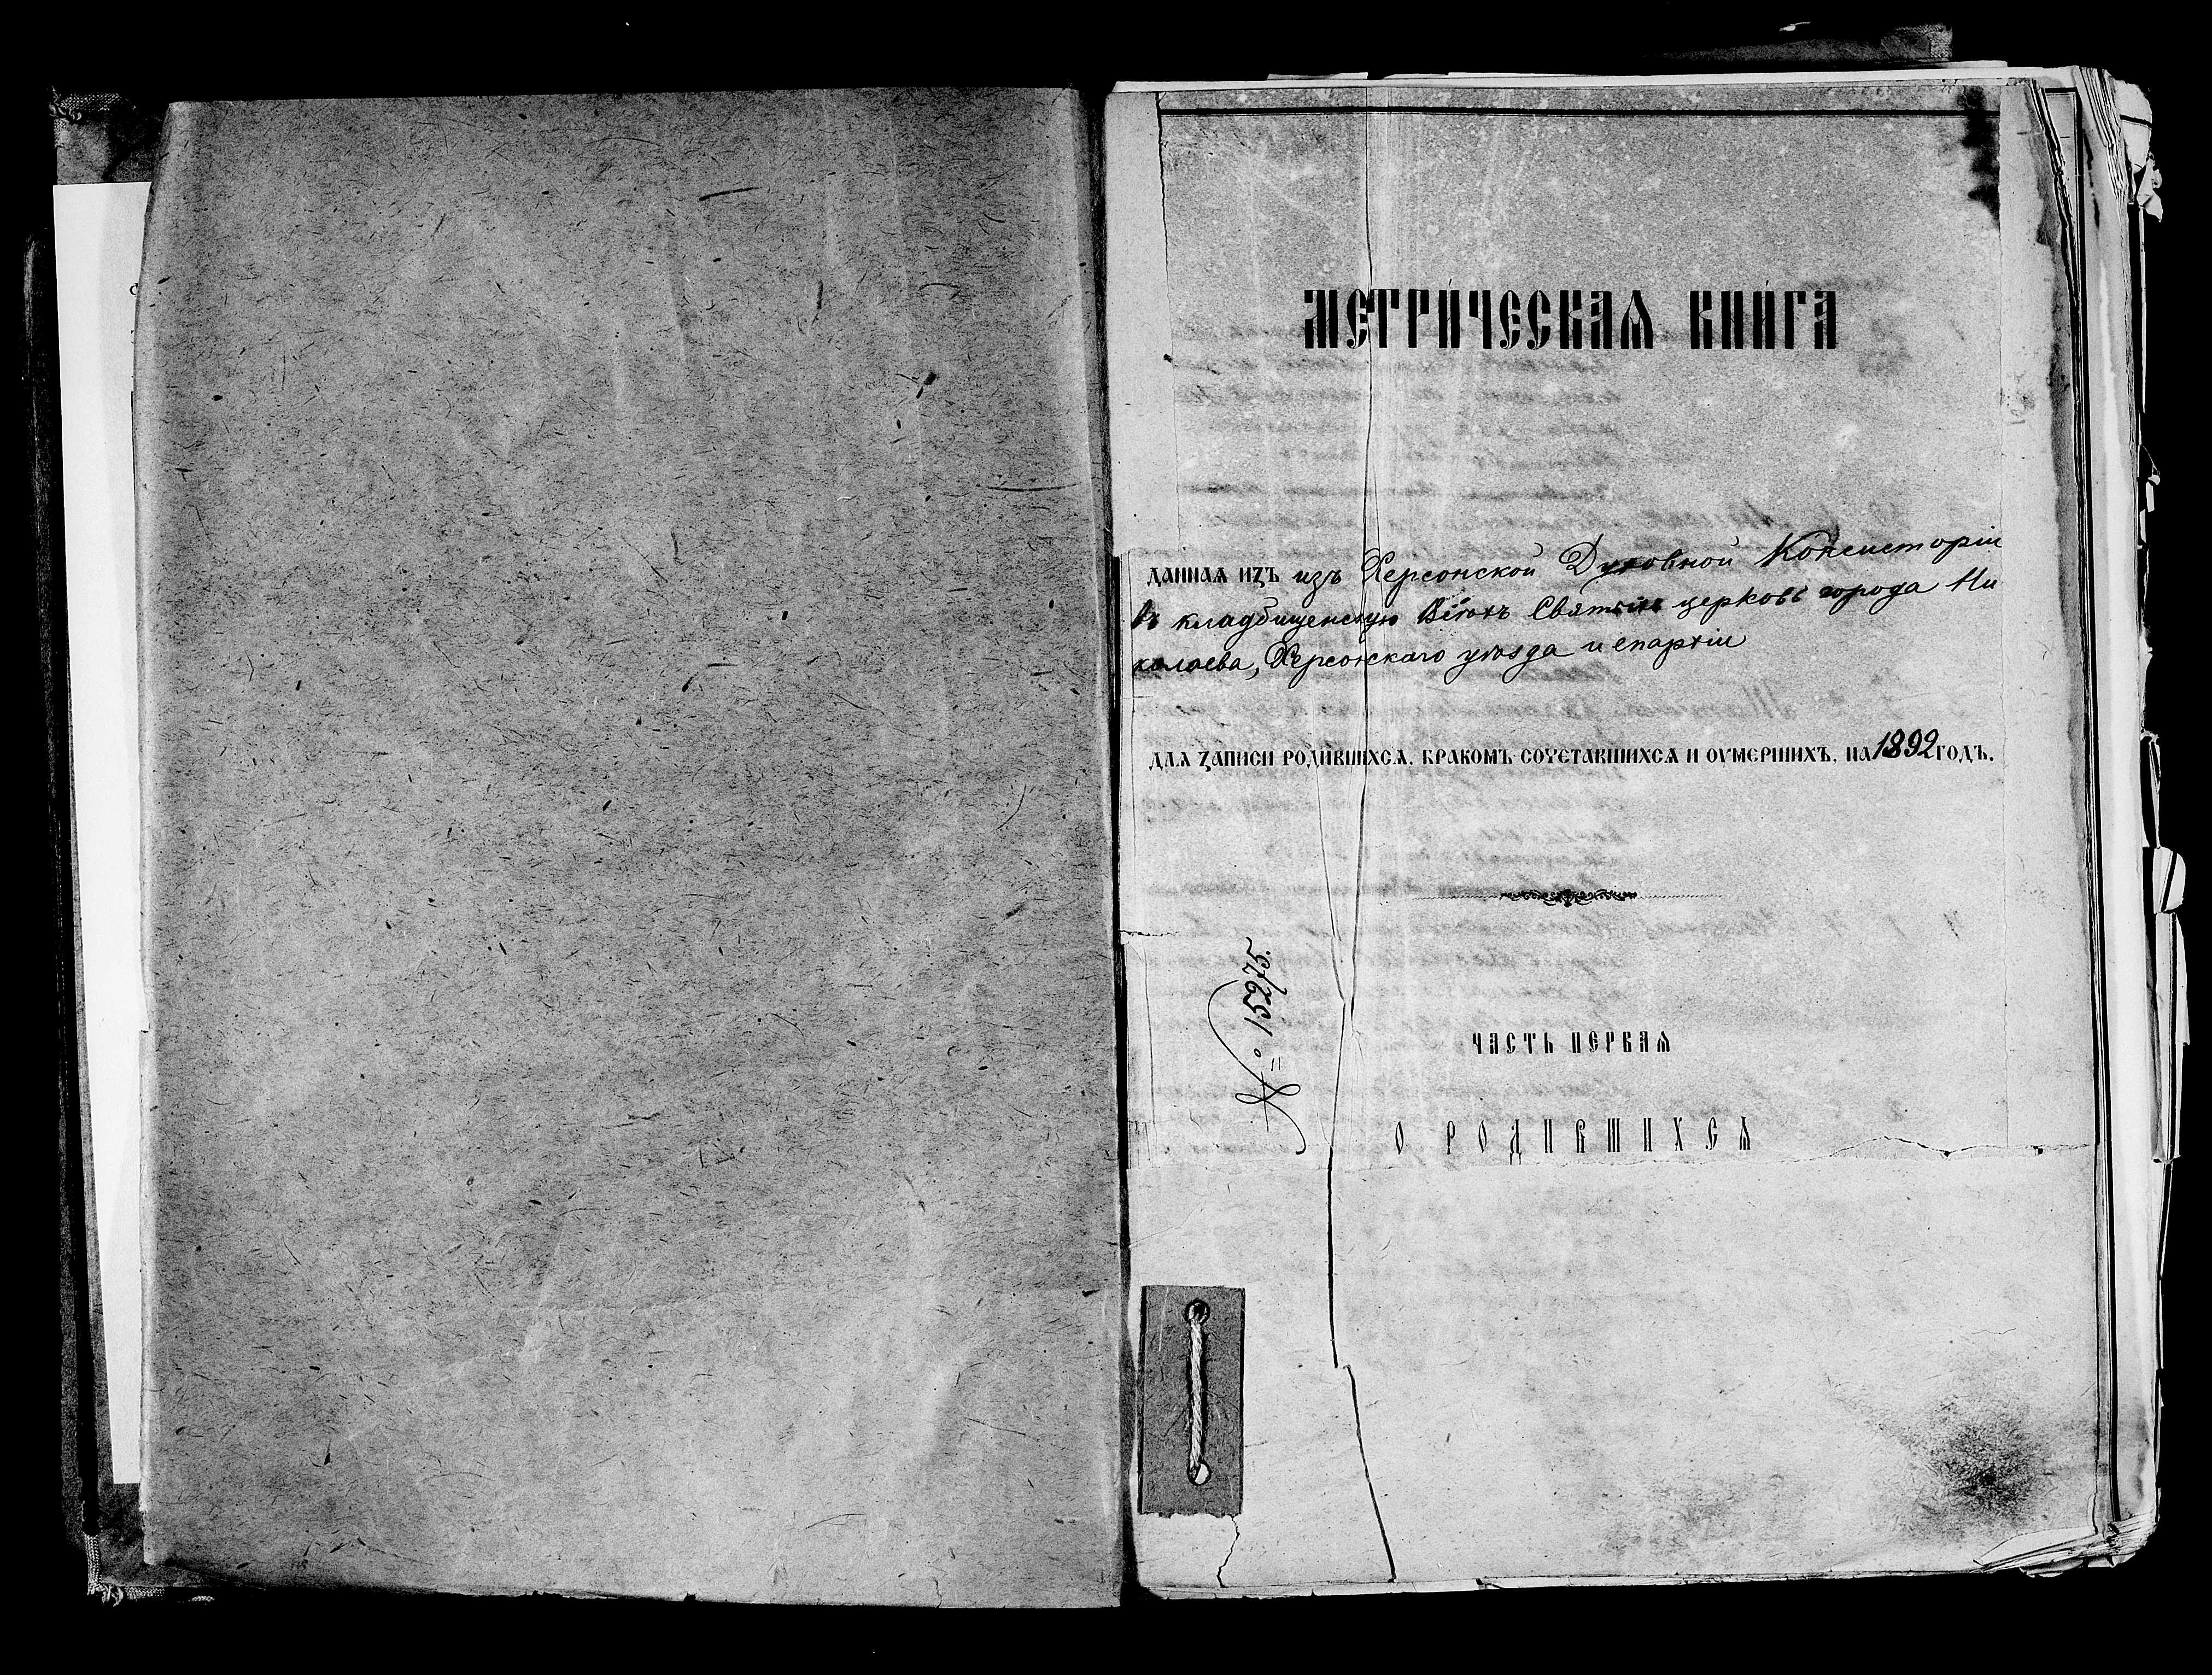 МЕТРИ́ЧЕСКАѦ КНИ́ГА
ДАННАѦ ИZЪ изъ Херсонской Духовной Консисторіи
въ кладбищенскую Всѣхъ Святыхъ церковь города Ни
колаева, Херсонскаго уѣзда и епархіи
ДЛѦ ZАПИСИ РОДИ́ВШИХСѦ, БРАКОМЪ СОЧЕТАВШИХСѦ И ОУМЕРШИХЪ, НА 1892 ГОДЪ.
№ 15275.
ЧАСТЬ ПЕРВАѦ
О РОДИВШИХСѦ